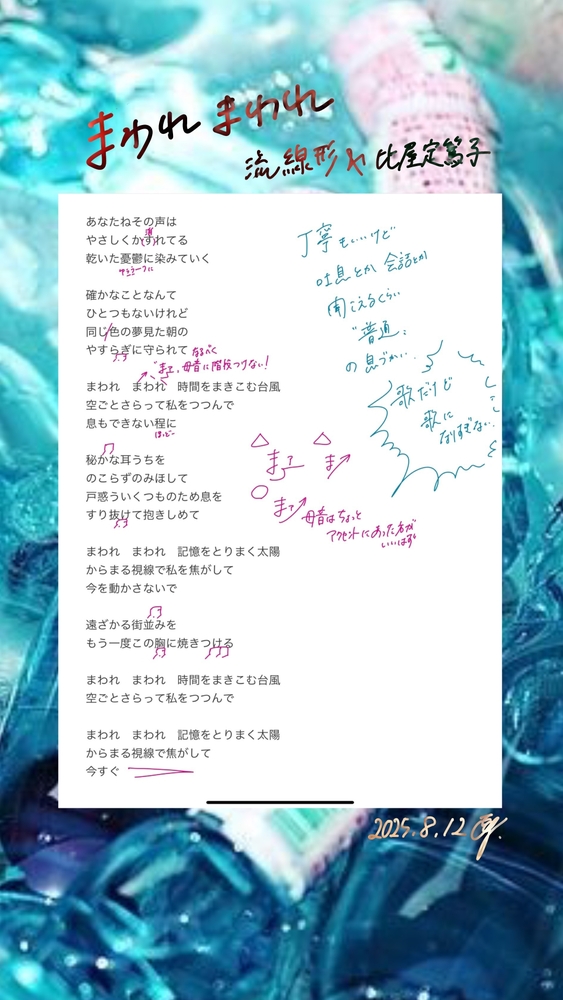 まわれ まわれ
流線形 & 比屋定篤子
あなたねその声は
やさしくかすれてる
乾いた憂鬱に染みていく
確かなことなんて
ひとつもないけれど
同じ色の夢見た朝の
やすらぎに守られて
なるべく
母音に階段つけない!
まわれ　まわれ　時間をまきこむ台風
空ごとさらって私をつつんで
息もできない程に
ほどー
秘かな耳うちを
のこらずのみほして
戸惑ういくつものため息を
すり抜けて抱きしめて
まわれ　まわれ　記憶をとりまく太陽
からまる視線で私を焦がして
今を動かさないで
遠ざかる街並みを
もう一度この胸に焼きつける
まわれ　まわれ　時間をまきこむ台風
空ごとさらって私をつつんで
まわれ　まわれ　記憶をとりまく太陽
からまる視線で焦がして
今すぐ
丁寧もいいけど
吐息とか 会話とか
聞こえるくらい
"普通"
の息づかい
歌だけど
歌に
なりすぎない
母音はちょっと
アクセントにあった方が
いいはず
2025.8.12